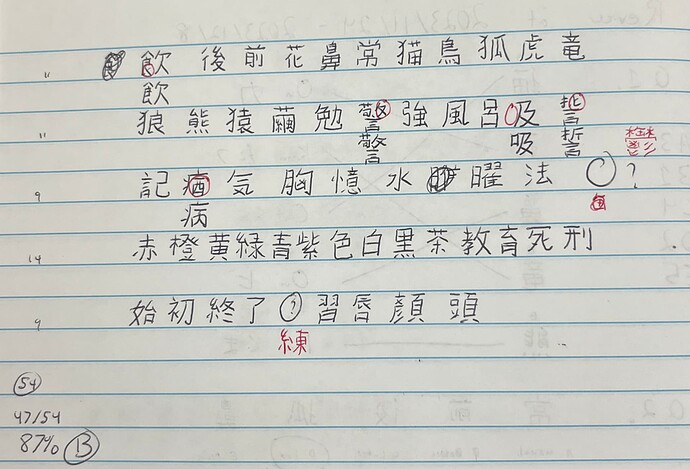 " 飲後前花鼻常猫鳥狐虎竜
飲
" 狼熊猿繭勉警強風呂吸誓
警 吸 誓 鬱
9 記 気胸憶水 曜法 ?
病
14 赤橙黄緑青紫色白黒茶教育死刑
9 始初終了?習唇顔頭
練
54
47/54
87% B